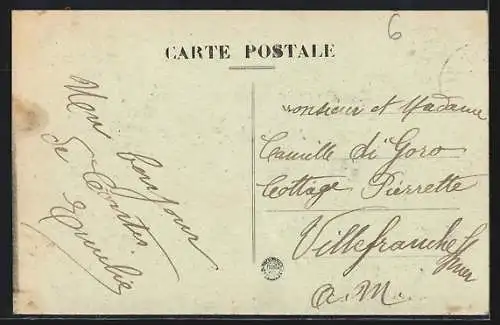 6
CARTE POSTALE
Mon bonjour
de Comtes
Emilie
Monsieur et Madame
Camille di Goro
Cottage Pierrette
Villefranche s/
mer
A. M.